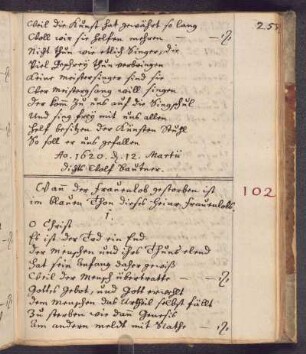 25
Weil die Kunst hat gewährt so lang
Woll wir sie helfen mehren
Nicht thun wie etlich Singer, die
Viel verbringen
Keine Meistersinger sind sie
Wer Meistergsang will singen
der komm zu uns auf die Singschul
Und sing frey mit uns allen
helf besitzen der Künsten Stuhl
So soll er uns gefallen
Ao. 1620. d. 12. Martii
dichts Wolf Bautner.
102
Wan der Frauenlob gestorben ist
im blauen Thon dieses Heinr. Frauenlobs
1.
O Christ
Es ist der Tod ein End
der Menschen und ihrs Thuns elend
hat sein Anfang daher gewiß
Weil der Mensch übertratte
Gottes Gebot, und Gott
dem Menschen das Urtheil selbst fällt
Zu sterben wie dan Genesis
Am andern meldt mit Rathe